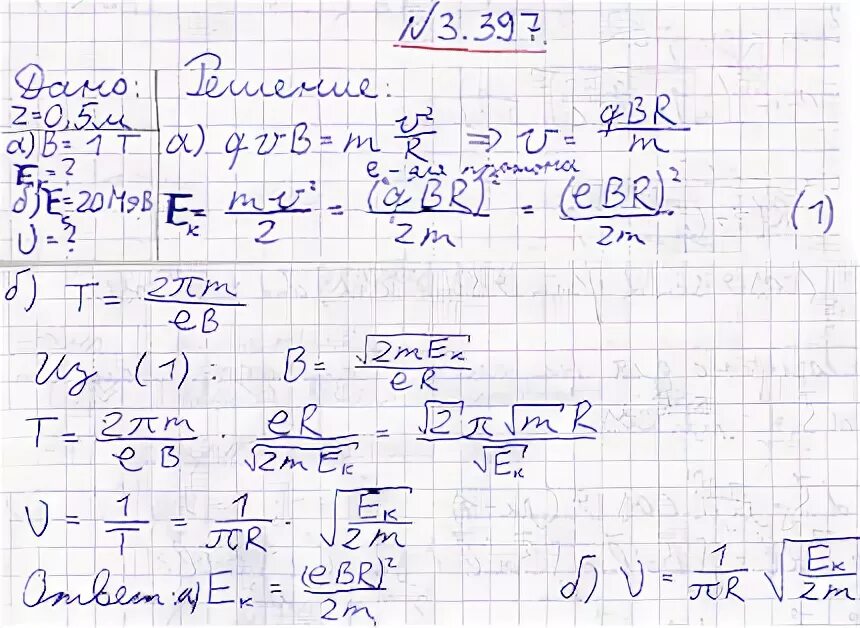 N 3.397.
Дано: Решение:
r=0,5м
а) B = 1 T
E_k = ?
б) E = 20 МэВ
ν = ?
а) qvB = m v²/R ⇒ v = qBR/m
e - для протона
E_k = mv²/2 = (qBR)²/2m = (eBR)²/2m. (1)
б) T = 2πm/eB
Из (1): B = √(2mE_k)/eR
T = 2πm/eB · eR/√(2mE_k) = √2 π √m R/√E_k
ν = 1/T = 1/πR · √(E_k/2m)
Ответ: а) E_k = (eBR)²/2m. б) ν = 1/πR √(E_k/2m)